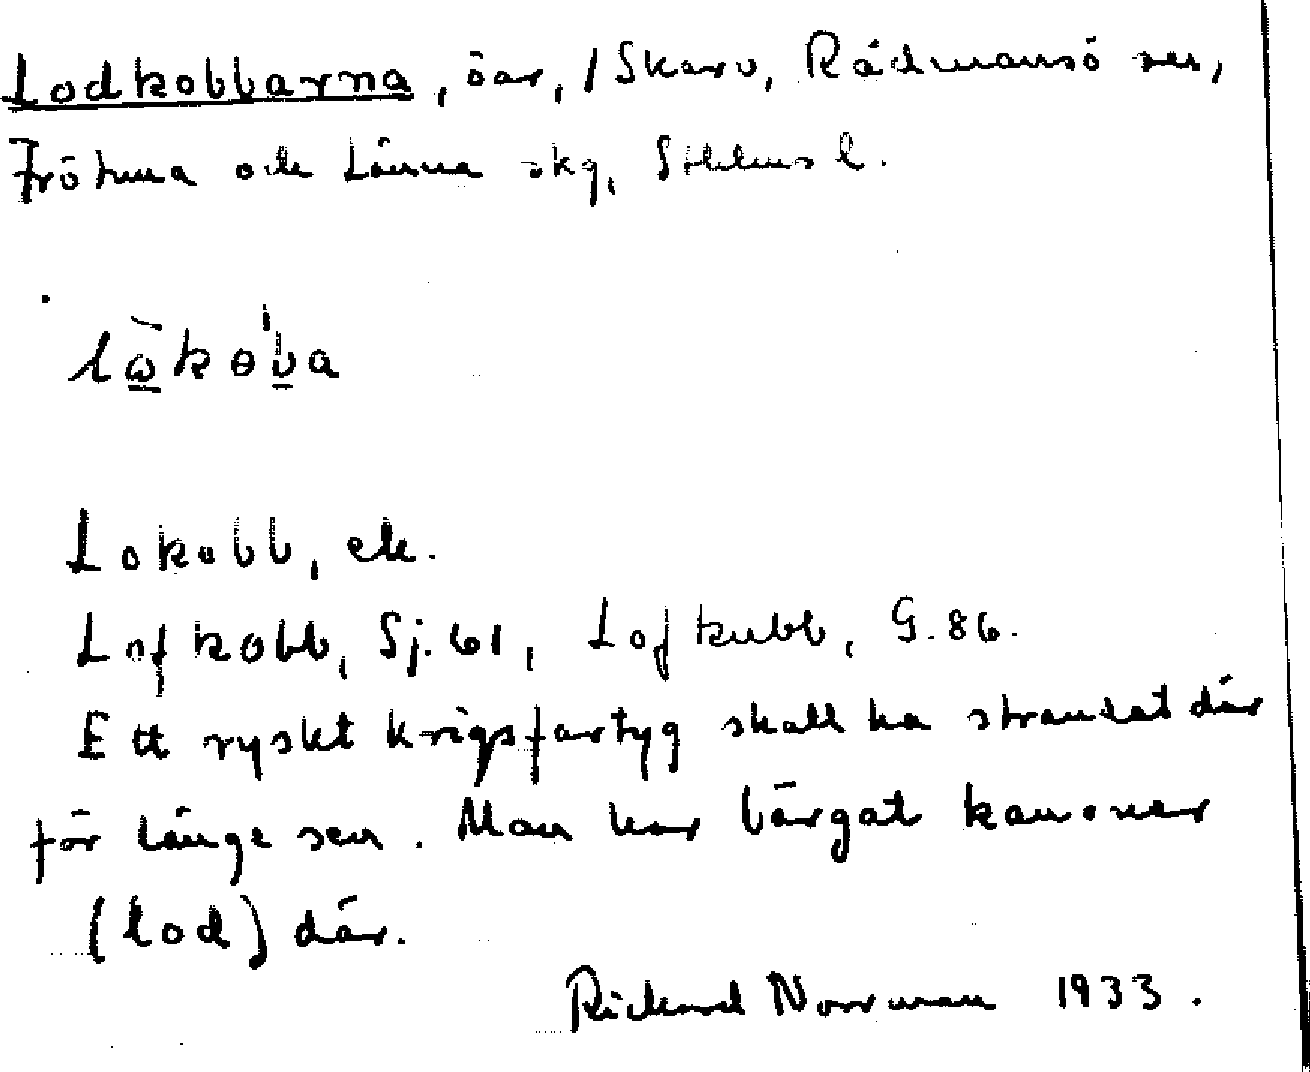 Lodkobbarna, öar, / Skarv, Rådmansö sn,
Frötuna och Länna skg, Sthlms l.
lὼ̠koʋ̠a
Lokobb, ek.
Lofkobb, Sj. 61, Lofkubb, G. 86.
Ett ryskt krigsfartyg skall ha strandat där
för länge sen. Man har bärgat kanoner
(lod) där.
Rickard Norrman 1933.